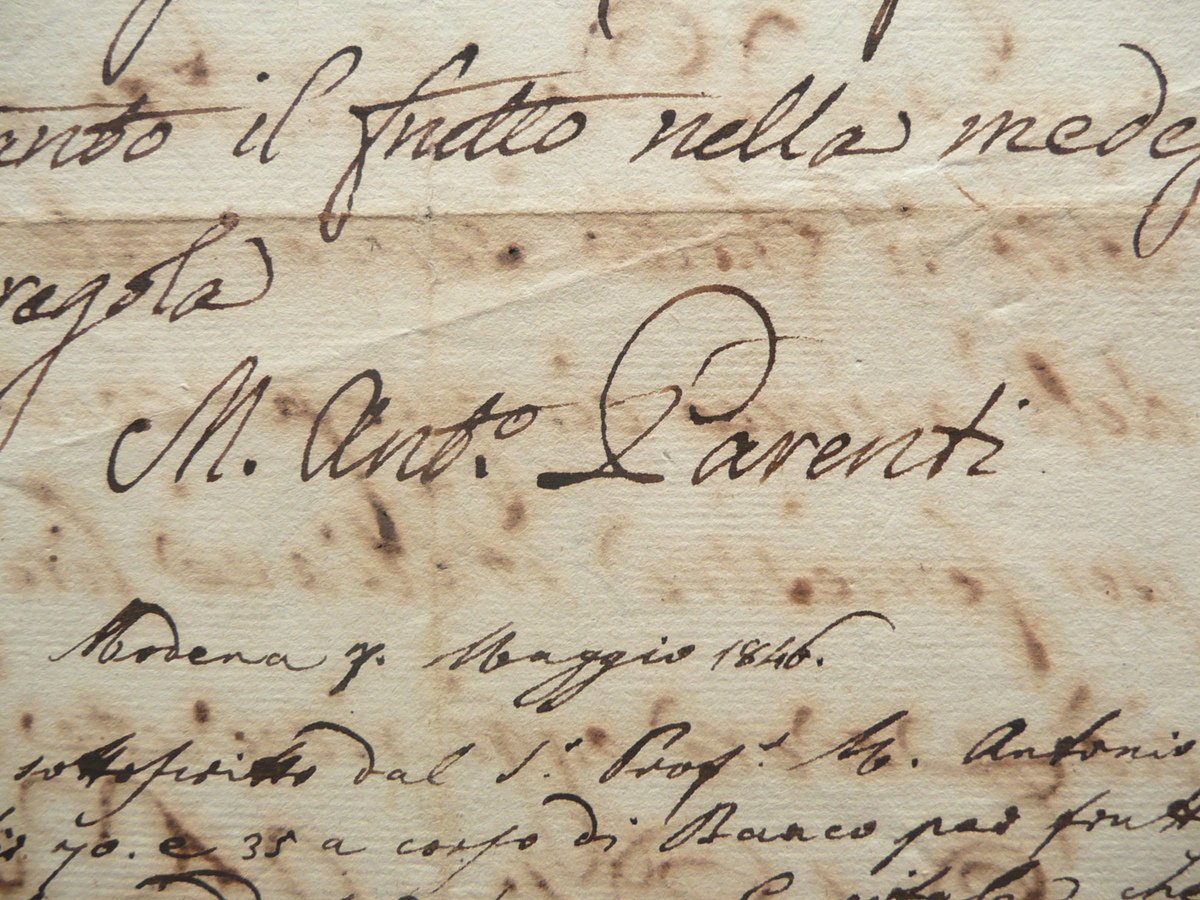 anto il frutto nella medeᵹ
regola
M. Antᵒ. Parenti
Modena 7. Maggio 1846.
sottoscritto dal Sʳ. Profʳ. M. Antonio
70. e 35 a corso di Banco per frutt